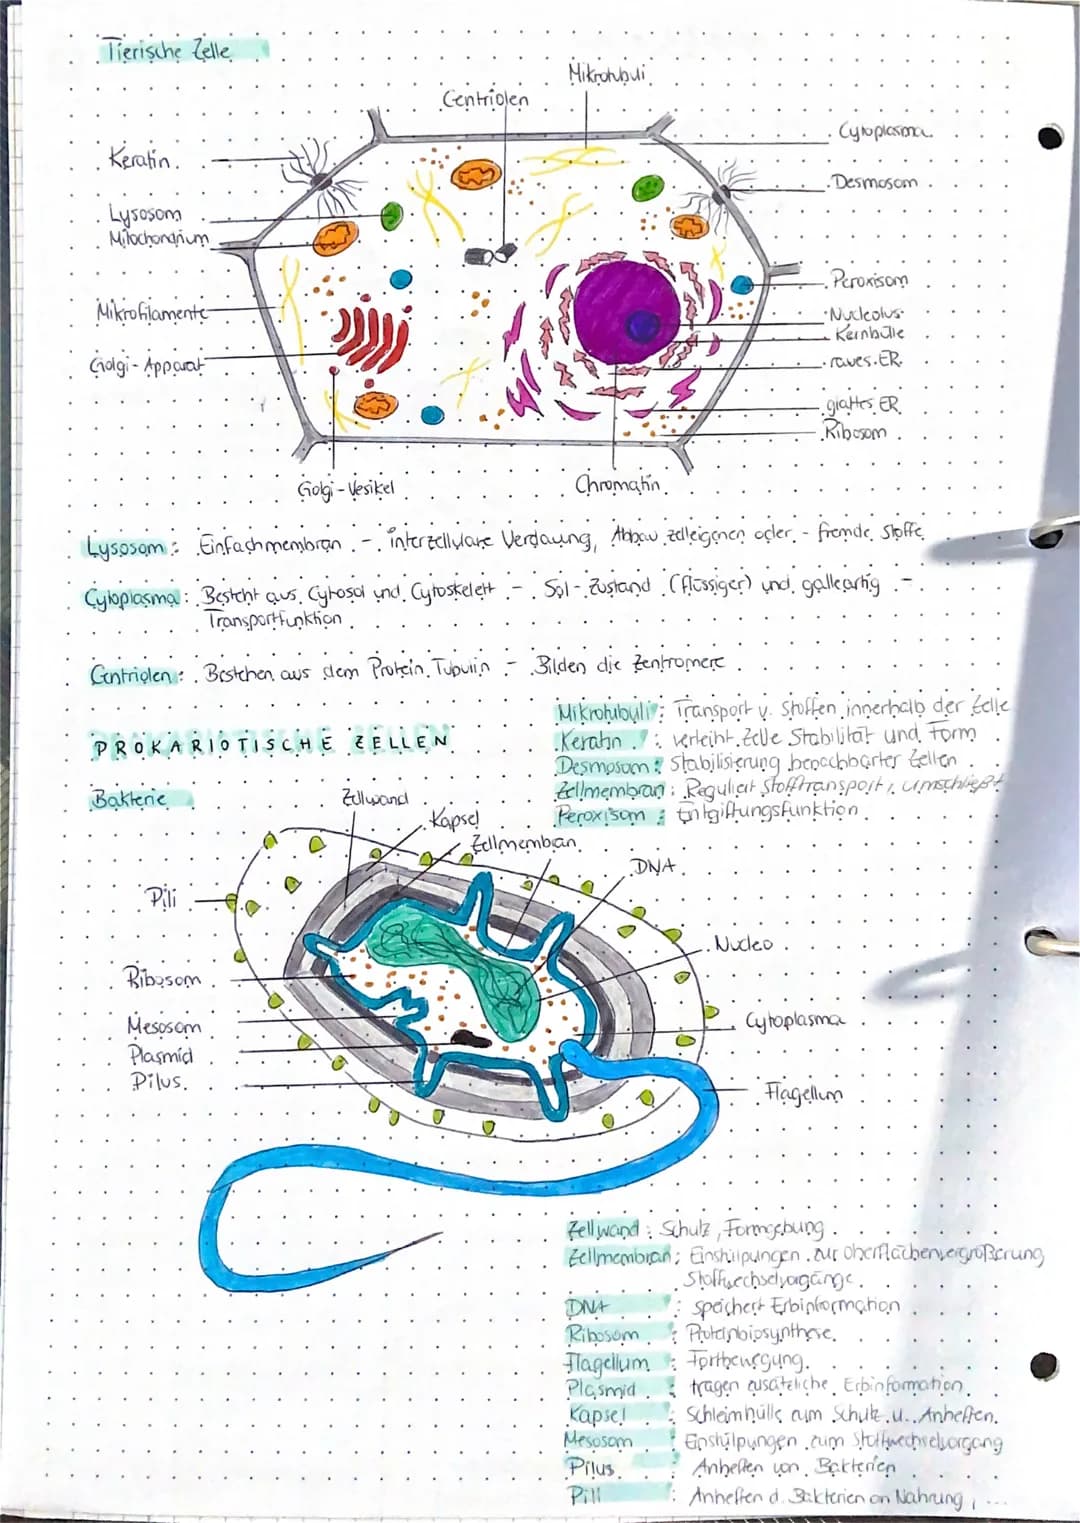 Tierische Zelle
Mikrotubuli
Centriolen
Cytoplasma
Keratin
Desmosom
Lysosom
Mitochondrium
Peroxisom
Mikrofilamente
Nucleolus
Kernhülle
Golgi-Apparat
raues ER
glattes ER
Ribosom
Golgi-Vesikel
Chromatin
Lysosom: Einfachmembran - interzelluläre Verdauung, Abbau zelleigenen oder - fremde Stoffe
Cytoplasma: Besteht aus Cytosol und Cytoskelett - Sol-Zustand (flüssiger) und galleartig -
Transportfunktion
Centriolen: Bestehen aus dem Protein Tubulin - Bilden die Zentromere
Mikrotubuli: Transport v. Stoffen innerhalb der Zelle
Keratin: verleiht Zelle Stabilität und Form
Desmosom: Stabilisierung benachbarter Zellen
Zellmembran: Reguliert Stofftransport, umschließt
Peroxisom: Entgiftungsfunktion
PROKARIOTISCHE ZELLEN
Bakterie
Zellwand
Kapsel
Zellmembran
DNA
Pili
Nucleo
Ribosom
Mesosom
Cytoplasma
Plasmid
Pilus
Flagellum
Zellwand: Schutz, Formgebung
Zellmembran: Einstülpungen zur Oberflächenvergrößerung
Stoffwechselvorgänge
DNA: speichert Erbinformation
Ribosom: Proteinbiosynthese
Flagellum: Fortbewegung
Plasmid: tragen zusätzliche Erbinformation
Kapsel: Schleimhülle zum Schutz u. Anheften
Mesosom: Enstülpungen zum Stoffwechselvorgang
Pilus: Anheften von Bakterien
Pili: Anheften d. Bakterien an Nahrung, ...